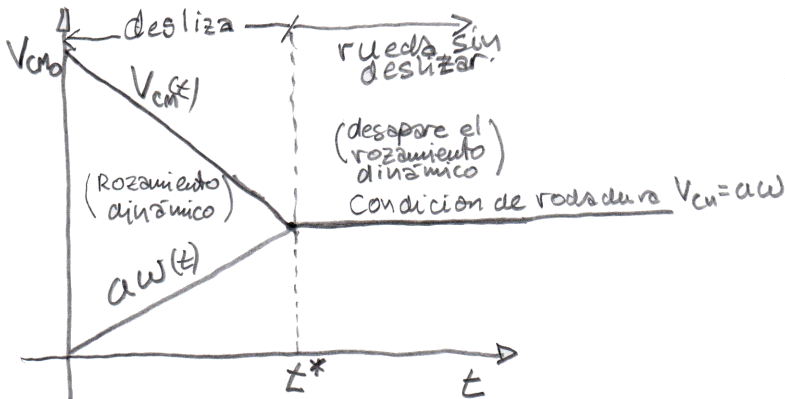 desliza
rueda sin
deslizar.
V_CM₀
V_CM(t)
(desapare el
rozamiento
dinámico)
(Rozamiento
dinámico)
Condición de rodadura V_CM=aω
aω(t)
t*
t